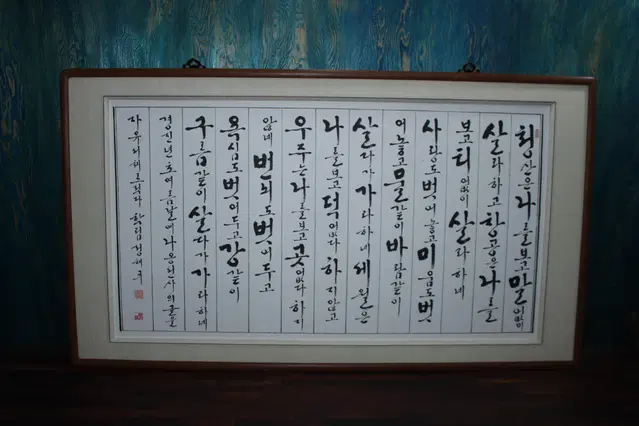 청산은 나를 보고 말없이
살라하고 창공은 나를
보고 티없이 살라하네
사랑도 벗어놓고 미움도 벗
어놓고 물같이 바람같이
살다가 가라하네 세월은
나를 보고 덕없다 하지않고
우주는 나를 보고 곳없다 하지
않네 번뇌도 벗어두고
욕심도 벗어두고 강같이
구름같이 살다가 가라하네
초여름날에 나옹선사의 글을
쓰다